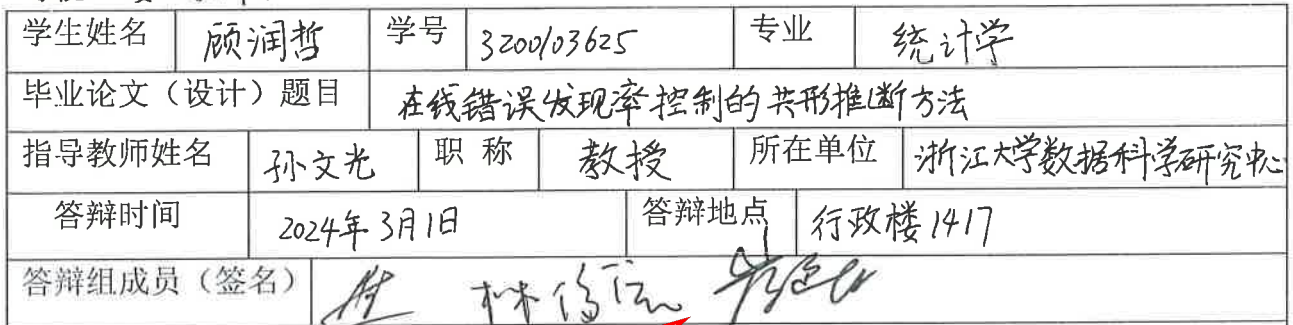 学生姓名 顾润哲 学号 3200103625 专业 统计学
毕业论文（设计）题目 在线错误发现率控制的共形推断方法
指导教师姓名 孙文光 职 称 教授 所在单位 浙江大学数据科学研究中心
答辩时间 2024年3月1日 答辩地点 行政楼1417
答辩组成员（签名）